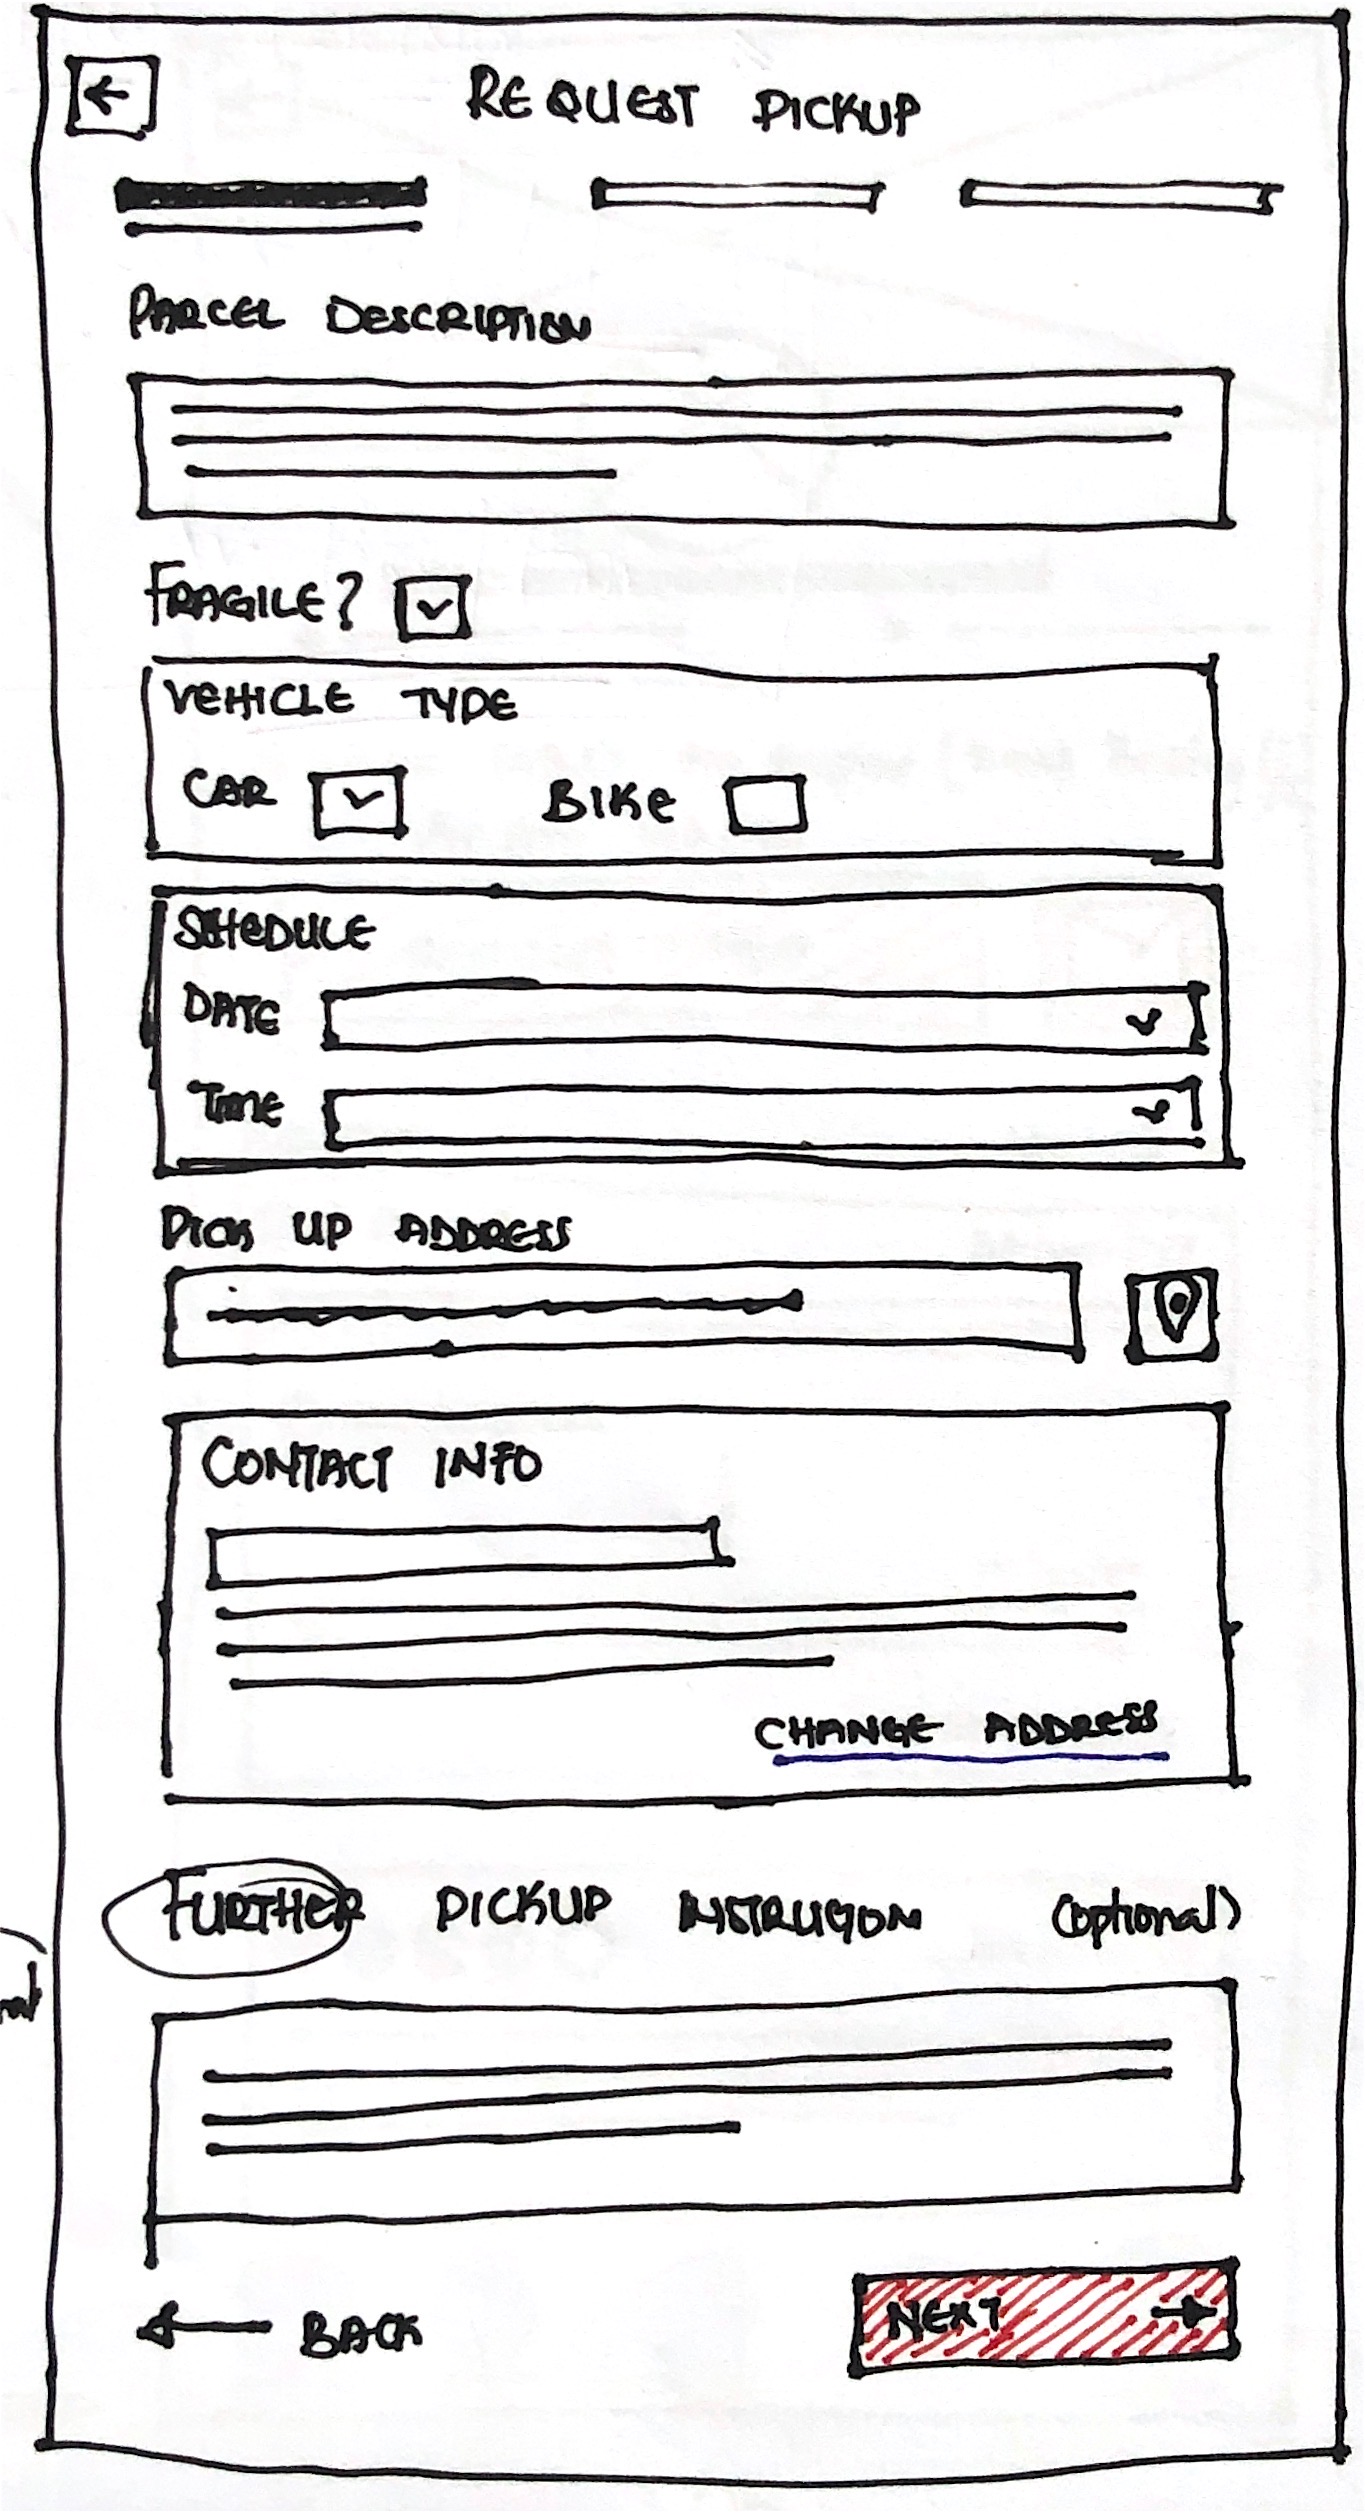 REQUEST PICKUP
PARCEL DESCRIPTION
FRAGILE?
VEHICLE TYPE
CAR BIKE
SCHEDULE
DATE
TIME
PICK UP ADDRESS
CONTACT INFO
CHANGE ADDRESS
FURTHER PICKUP INSTRUCTION (optional)
BACK NEXT